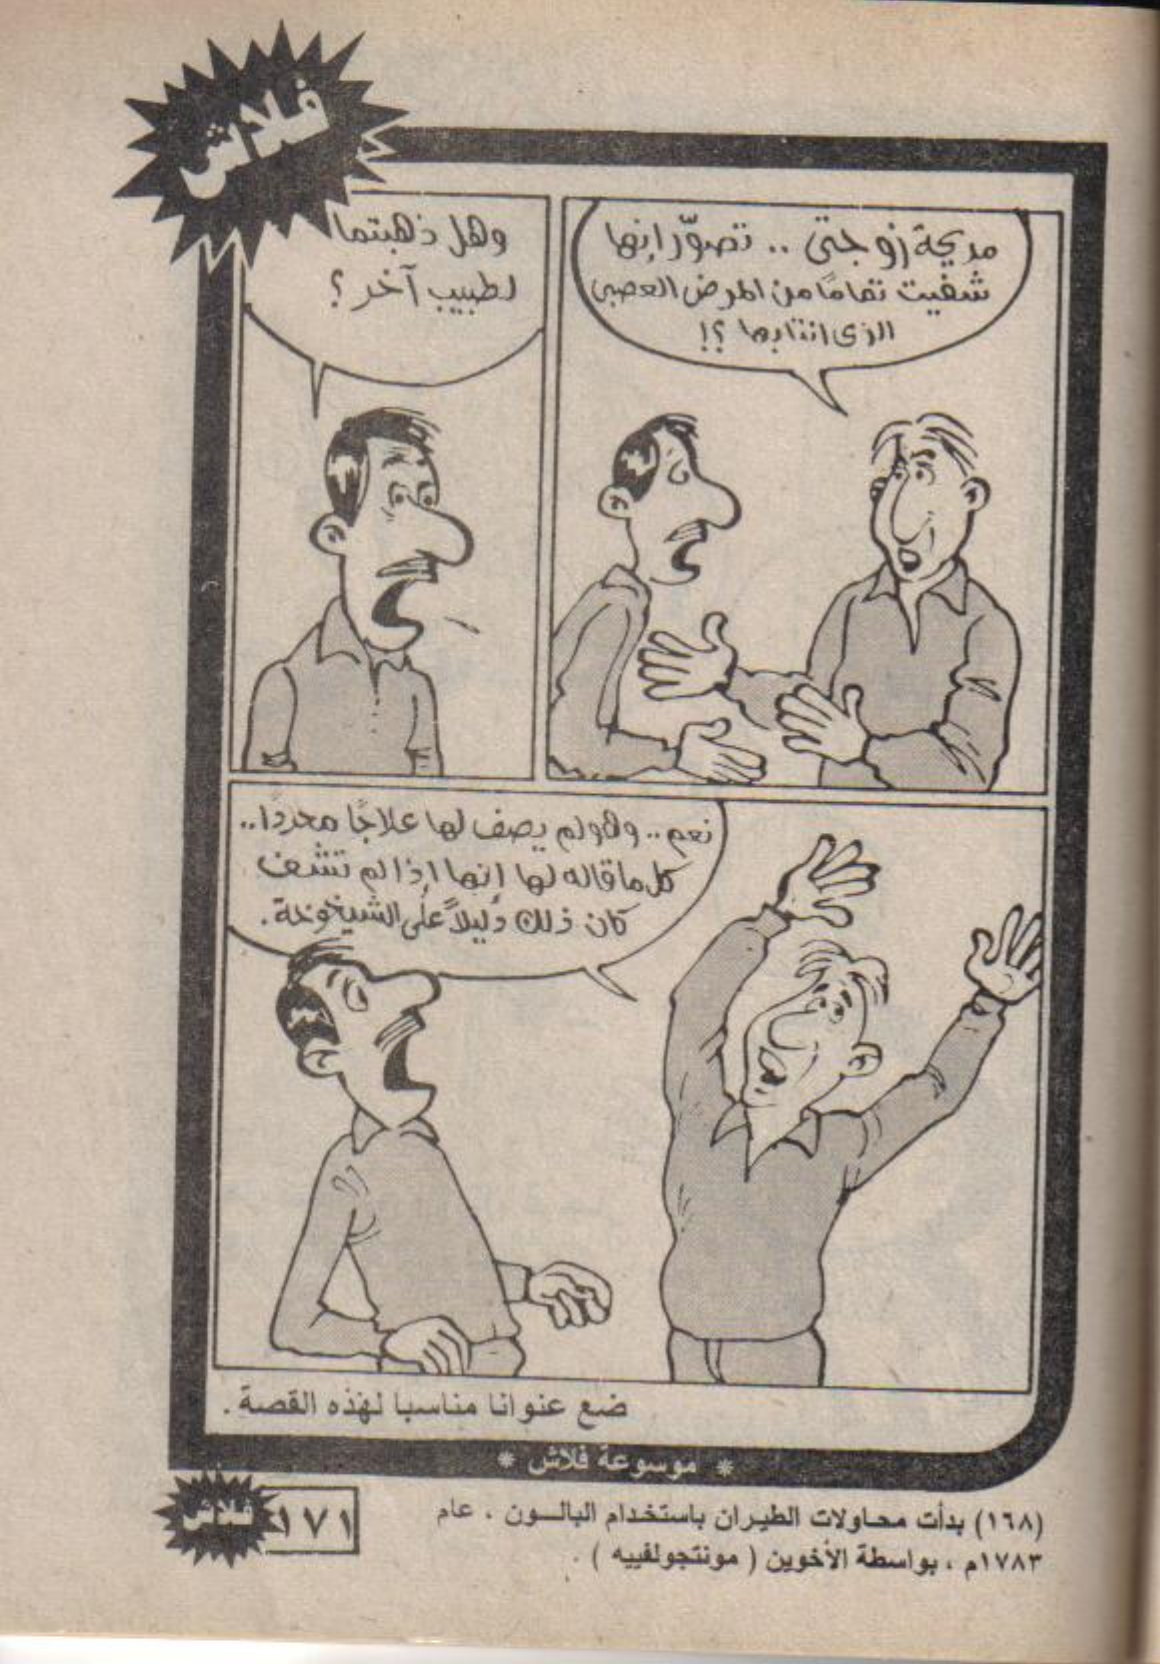 فلاش
مديحة زوجتى .. تصوّر إنها
شفيت تمامًا من المرض العصبى
الذى انتابها ؟!
وهل ذهبتما
لطبيب آخر ؟
نعم .. وهو لم يصف لها علاجًا محددًا ..
كل ما قاله لها إنها إذا لم تشف
كان ذلك دليلاً على الشيخوخة .
ضع عنوانا مناسبا لهذه القصة .
* موسوعة فلاش *
(١٦٨) بدأت محاولات الطيران باستخدام البالون ، عام
١٧٨٣م ، بواسطة الأخوين ( مونتجولفييه ) .
١٧١
فلاش